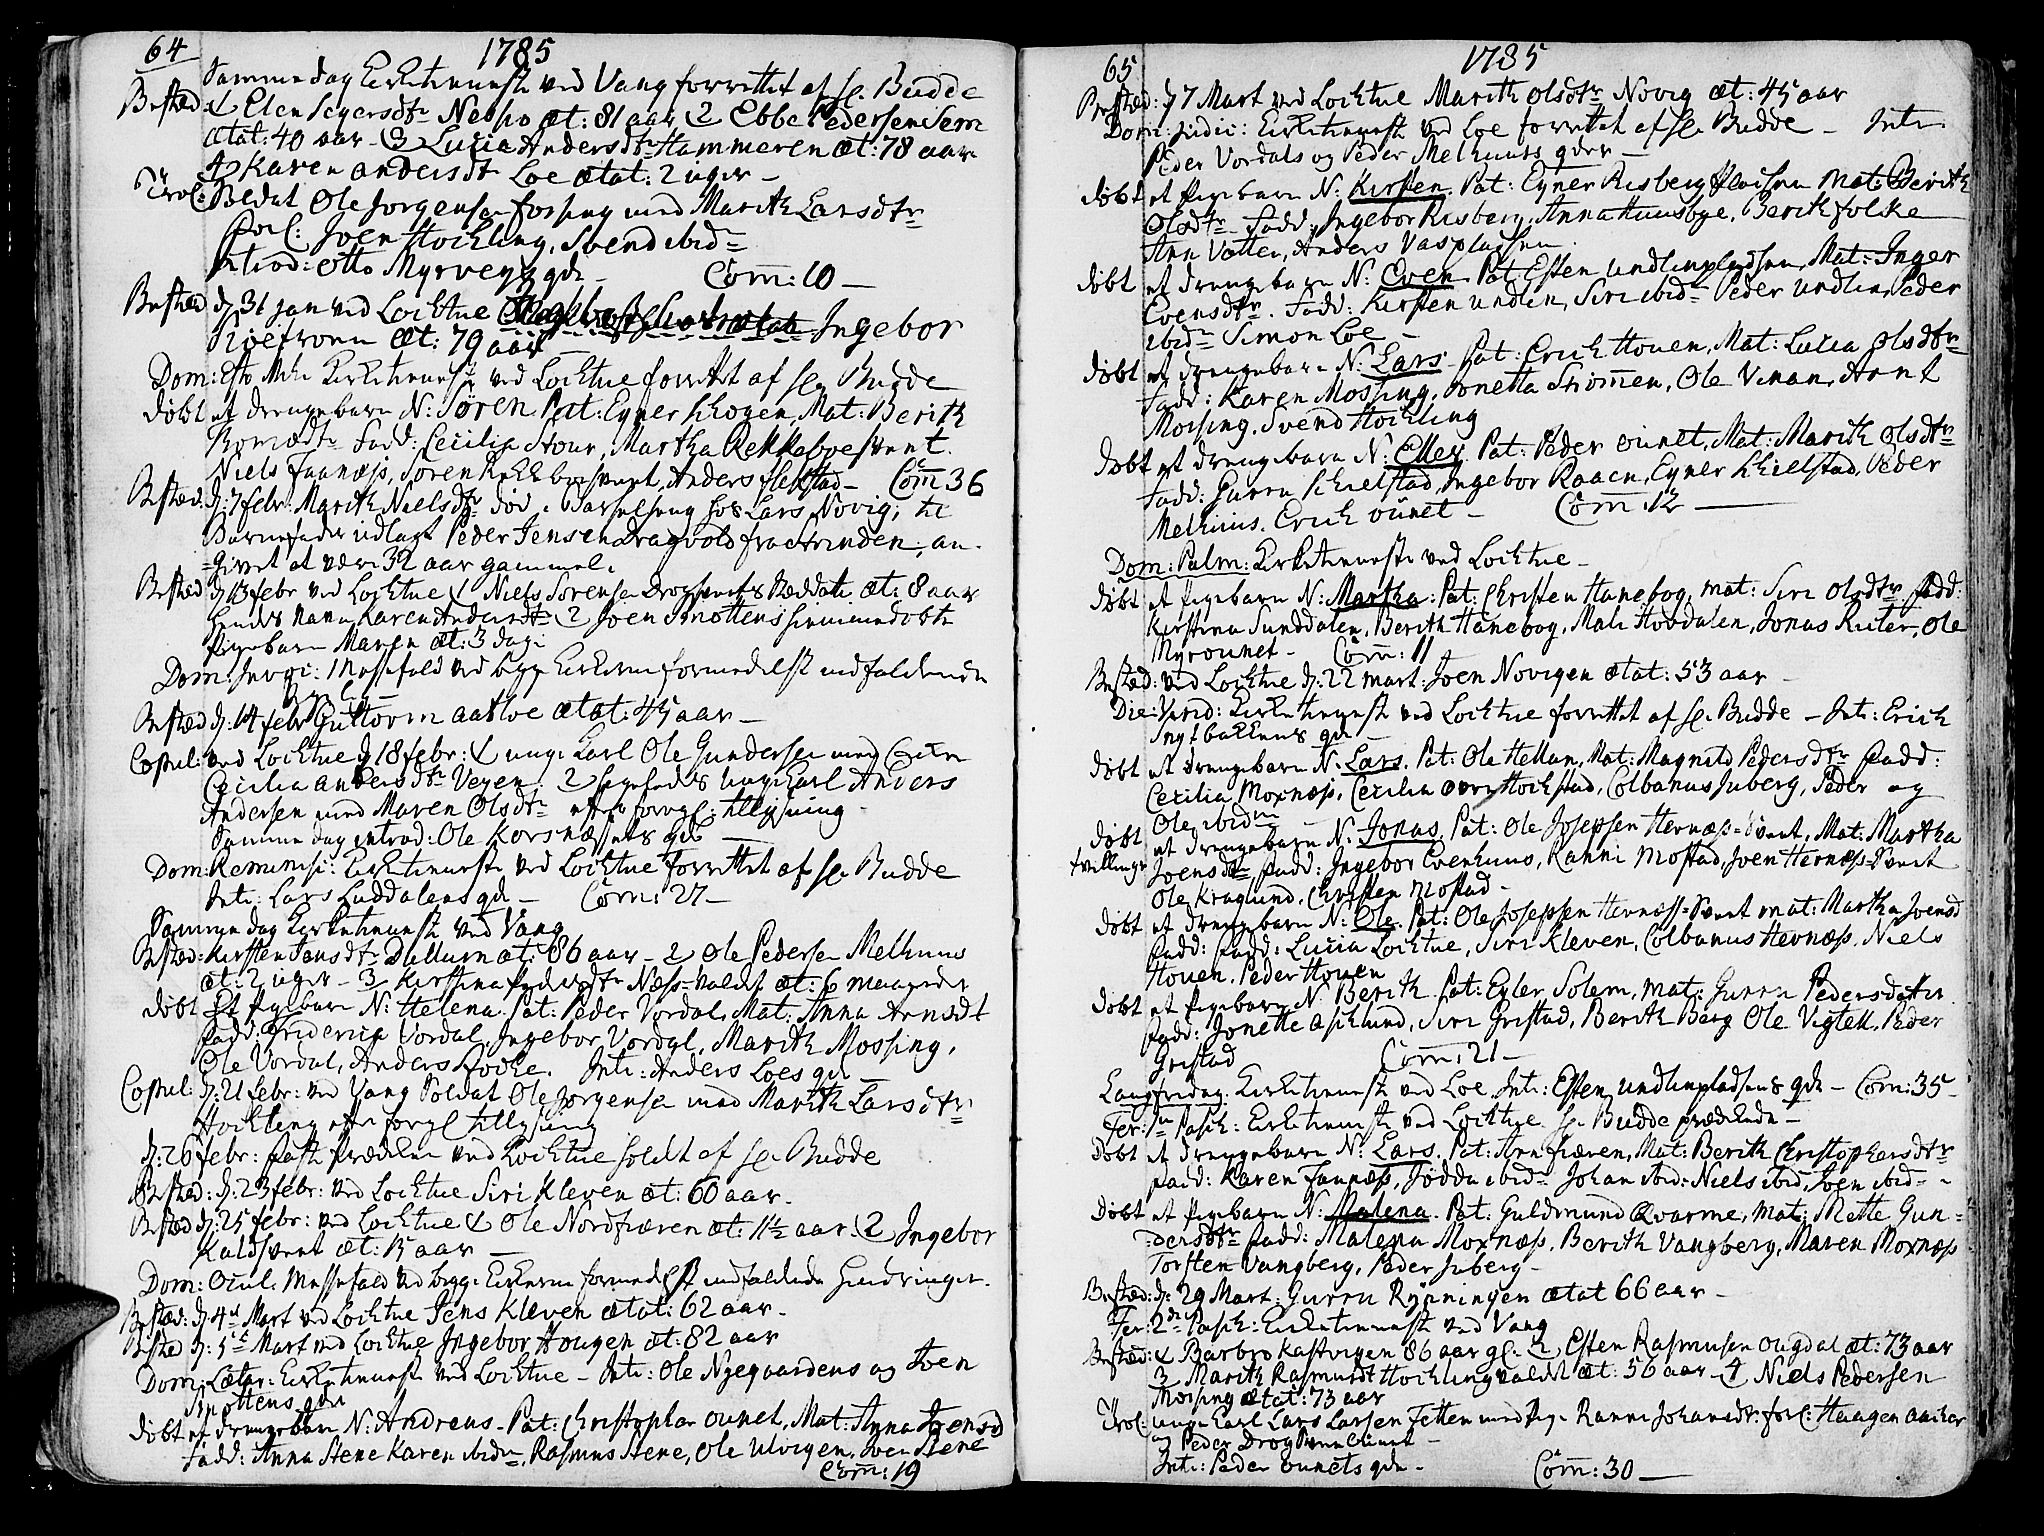 64
1785
Samme dag Kirketieneste ved Vang forrettet af Hr Budde
Bested: 1 Elen Sejersdtr Nebpo æt: 81 aar 2 Ebbe Pedersen Sem
ætat: 40 aar 3 Lucie Andersdtr Hammeren æt: 78 aar
4 Karen Andersdt Loe ætat: 2 uger
Trol: Bedat Ole Jorgensen med Marith Larsdtr
Forl: Joen Hockling, Svend ibid
Introd: Otto Myrvegg qde Com: 10
Bested d: 31 Jan ved Locktue Ingebor
æt: 79 aar
Dom: Esto Mihi Kirketieneste ved Locktue forrettet af Hr Budde
døbt et drengebarn N: Sören Pat: Eyner Skogen, Mat: Berith
Fadd: Cecilia Stour, Martha Rekkeboesvent.
Niels Faanæss, Soren Rekkeboesvent, Anders Com 36
Bested: d: 7 febr: Marith Nielsdtr død i Barselseng hos Lars Növig, til
Barnefader udlagt Peder Jensen Dragvold fra Strinden, an-
givet at være 32 aar gammel.
Bested d 13 febr ved Locktue 1 Niels Sörensen æt: 8 aar
hendes navn Karen Andersdtr 2 Joen Smottens hiemmedøbte
Pigebarn Maren æt: 3 dag:
Dom: Invoc: Messefald ved begge Kirkerne formedelst indfaldende
Bested d: 14 febr Guttorm Aasloe ætat: 45 aar
Copul: ved Locktue d 18 febr: 1 unge Karl Ole Gundersen med
Cecilia Andersdtr Veyen. 2 unge Karl Anders
Andersen med Maren Olsdtr efter foregl: tillysning
Samme dag introd: Ole Korsnæssets qde
Dom: Reminisc: Kirketieneste ved Locktue forrettet af Hr Budde
Intr: Lars Luddalens qde Com: 27
Samme dag Kirketieneste ved Vang
Bested: Kirsten Jansdtr Dullum æt: 86 aar 2 Ole Pedersen Melhuus
æt: 2 uger 3 Kirstina Pedersdtr Næss-valdet æt: 6 maaneder
døbt Et Pigebarn N: Helena Pat: Peder Vordal, Mat: Anna Arnsdt
Fadd: Friderica Vordal, Ingebor Vordal, Marith Mossing,
Ole Vordal, Anders Intr: Anders Loes qde
Copul: d: 21 febr: ved Vang Soldat Ole Jorgensen med Marith Larsdtr
Hockling efter foregl tillysning
d: 26 febr: Faste Prædiken ved Locktue holdt af Hr Budde
Bested: d: 23 febr: ved Locktue Siri Kleven æt: 60 aar.
Bested d: 25 febr: ved Locktue 1 Ole Nordfiæren æt: 11½ aar. 2 Ingebor
Kaldsvent æt: 15 aar
Dom: Ocul: Messefald ved begge Kirkerne formedelst indfaldende hindringer.
Bested: d: 4de Mart ved Locktue Jens Kleven ætat: 62 aar
Bested d: 5te Mart ved Locktue Ingebor Hougen æt: 82 aar
Dom: Lætar: Kirketieneste ved Locktue Intr: Ole Nyegaardens og Joen
Smottens qder
døbt et drengebarn N: Andreas. Pat: Christopher Ounet, Mat: Anna Joensd
Fadd: Anna Stene Karen ibidn, Rasmus Stene, Ole Ulvigen, Joen Stene
Com: 19
65
1785
Bested: d 7 Mart ved Locktue Marith Olsdtr Növig æt: 45 aar
Dom: Judic: Kirketieneste ved Loe forrettet af Hr Budde Intr:
Peder Vordals og Peder Melhuuss qder
døbt et Pigebarn N: Kirsten. Pat: Eyner Risberg Mat: Berith
Olsdtr Fadd: Ingebor Risberg, Anna Huusbye, Berith folke
Arn Vatten, Anders Vasplassen
døbt et drengebarn N: Even Pat: Esten Undlienpladsen, Mat: Inger
Evensdtr. Fadd: Kirsten Undlien, Siri ibidn Peder Undlien, Peder
ibidn Simon Loe
døbt et drengebarn N: Lars Pat: Erich Houen, Mat: Lucia Olsdtr
Fadd: Karen Mossing, Jonetta Strömen, Ole Vinan, Arnt
Mossing, Svend Hockling
døbt et drengebarn N: Ellev Pat: Peder Ounet, Mat: Marith Olsdtr
Fadd: Gurru Schielstad, Ingebor Raaen, Eyner Schielstad, Peder
Melhuus. Erich Ounet Com: 12
Dom: Palm: Kirketieneste ved Locktue
døbt et Pigebarn N: Martha Pat: Christen Hanebog, Mat: Siri Olsdtr. Fadd:
Kirstina Sunddalen, Berith Hanebog, Mali Hovdalen, Jonas Ruter, Ole
Myrounet Com: 11
Bested: ved Locktue d: 22 Mart: Joen Novigen ætat: 53 aar
Die: Virid: Kirketieneste ved Locktue forrettet af Hr Budde Intr: Erich
qde
døbt et drengebarn N. Lars. Pat: Ole Hellan, Mat: Magnild Pedersdtr Fadd:
Cecilia Moxnæss, Cecilia over Hockstad, Colbanus Juberg, Peder og
Ole ibidm
døbt et drengebarn N. Jonas. Pat: Ole Josephsen Hernæss-svent, Mat: Martha
tvillinge Joensdtr Fadd: Ingebor Evenhuus, Ranni Mostad, Joen Hernæss-svent
Ole Kraglund, Christen Mostad
døbt et drengebarn N: Ole. Pat: Ole Josephsen Hernæss-svent Mat: Martha Joensd
Fadd: Fadd: Lucia Locktue, Siri Kleven, Colbanus Hernæss, Niels
Houen, Peder Houen
døbt et Pigebarn N Berith Pat: Eyler Solem, Mat: Gurru Pedersdatter
Fadd: Jonette Asklund, Siri Gristad, Berith Berg Ole Vigtell, Peder
Gristad Com: 21
Langfredag: Kirketieneste ved Loe Intr: Esten Undlienpladsens qde Com: 35
Fer: 1ma Pasch: Kirketieneste ved Locktue Hr Budde prædikede
døbt et drengebarn N: Lars. Pat: Arn Fiæren, Mat: Berith Christophersdtr
Fadd: Karen Fannæss, Jodda ibidn Johan ibid: Niels ibid, Joen ibid
døbt et Pigebarn N: Malena. Pat: Guldmund Qvarme, Mat: Mette Gun-
dersdtr Fadd: Malena Moxnæss, Berith Vangberg, Maren Moxnæss
Torsten Vangberg, Peder Juberg
Bested: d: 29 Mart: Gurru Rönningen ætat 66 aar
Fer: 2de Pasch: Kirketieneste ved Vang
Bested: 1 Barbro Kastvigen 86 aar gl. 2 Esten Rasmusen Ougdal æt: 73 aar
3 Marith Rasmusdt Hocklingvaldet æt: 56 aar 4 Niels Pedersen
Mossing ætat: 73 aar
Trol: unge Karl Lars Larsen Fetten med Pige Ranni Johansdtr: forl: Haagen
og Peder
Intr: Peder Ounets qde Com: 30